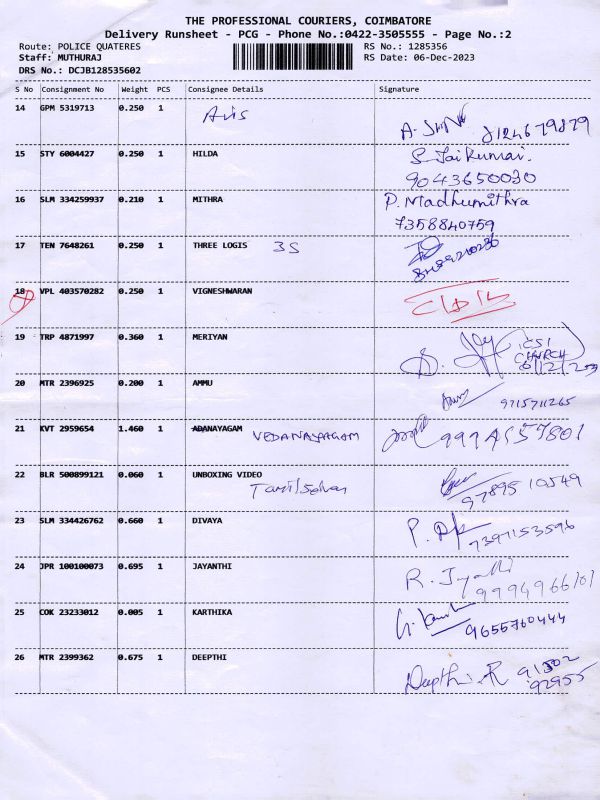 THE PROFESSIONAL COURIERS, COIMBATORE
Delivery Runsheet - PCG - Phone No.:0422-3505555 - Page No.:2
Route: POLICE QUATERES RS No.: 1285356
Staff: MUTHURAJ RS Date: 06-Dec-2023
DRS No.: DCJB128535602
S No Consignment No Weight PCS Consignee Details Signature
14 GPM 5319713 0.250 1 Avis
8124679879
15 STY 6004427 0.250 1 HILDA S. Jaikumar.
9043650030
16 SLM 334259937 0.210 1 MITHRA P. Madhumithra
7358840759
17 TEN 7648261 0.250 1 THREE LOGIS 3S
18 VPL 403570282 0.250 1 VIGNESHWARAN
19 TRP 4871997 0.360 1 MERIYAN CSI
CHURCH
20 MTR 2396925 0.200 1 AMMU
9715711265
21 KVT 2959654 1.460 1 ADANAYAGAM VEDANAYAGAM 9994157801
22 BLR 500899121 0.060 1 UNBOXING VIDEO
Tamilselvan 9789510549
23 SLM 334426762 0.660 1 DIVAYA
7397153596
24 JPR 100100073 0.695 1 JAYANTHI R. Jyanthi
9994966101
25 COK 23233012 0.005 1 KARTHIKA
9655760444
26 MTR 2399362 0.675 1 DEEPTHI
Deepthi. R 91502
92955